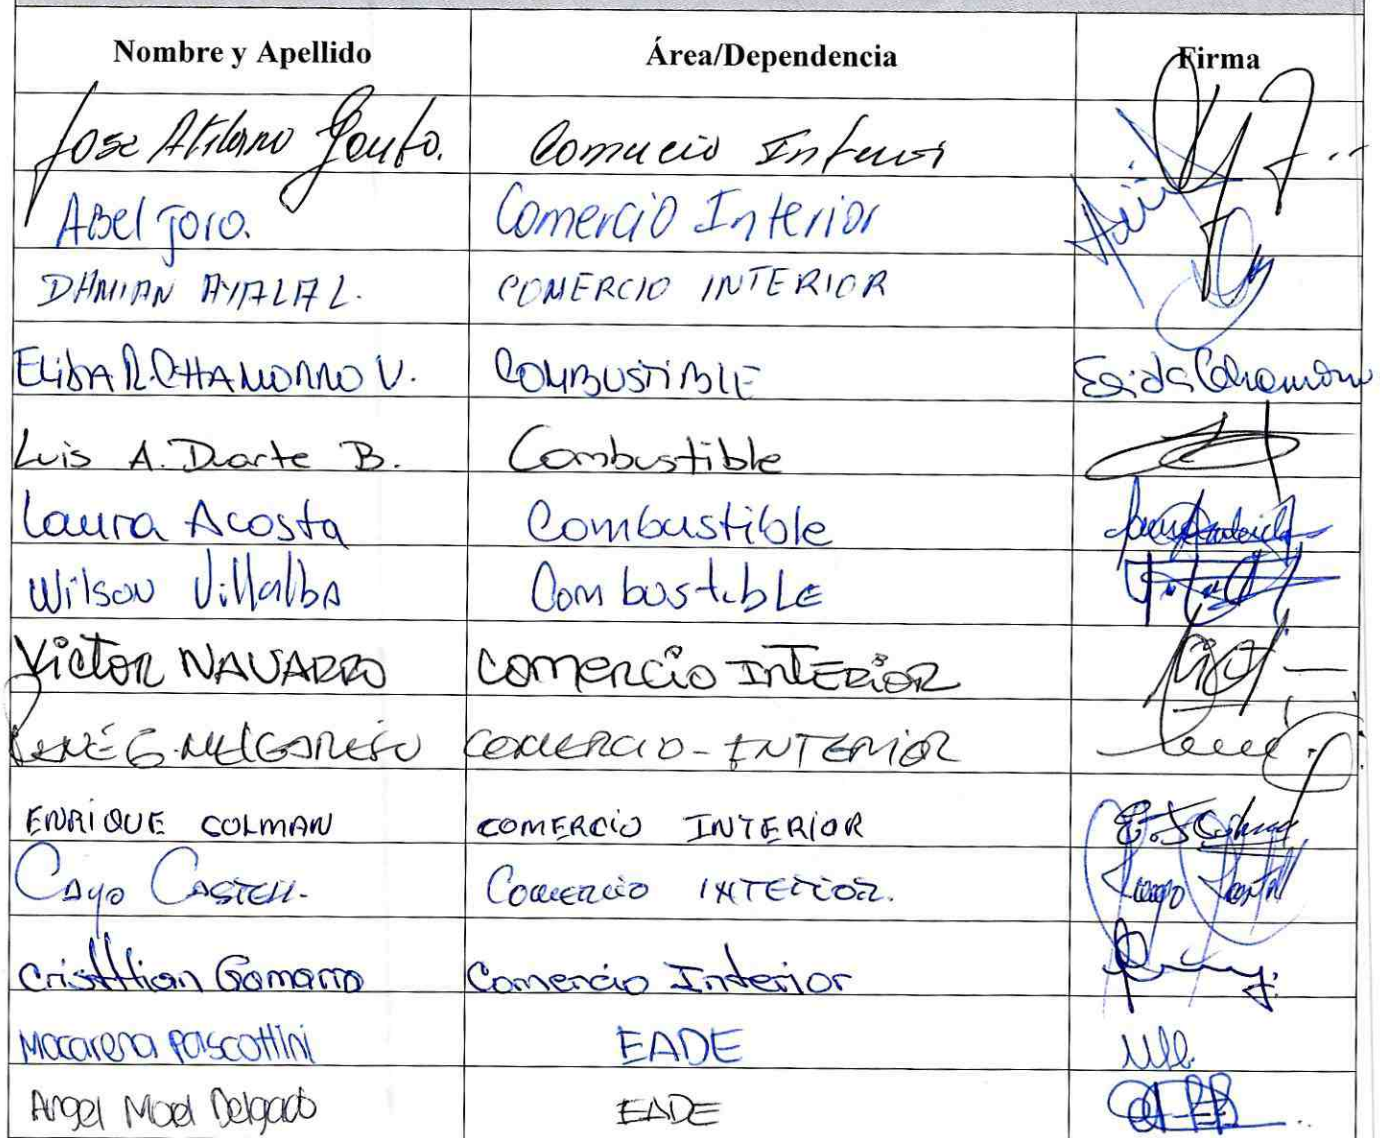 Nombre y Apellido Área/Dependencia Firma
Jose Atilano Comercio Interior
Abel Toro. Comercio Interior
DAMIAN AYALA L. COMERCIO INTERIOR
ELIDA R. CHAMORRO V. COMBUSTIBLE Elida Chamorro
Luis A. Duarte B. Combustible
Laura Acosta Combustible
Wilson Villalba Combustible
Victor NAVARRO COMERCIO INTERIOR
RENÉ G. MELGAREJO COMERCIO-INTERIOR
ENRIQUE COLMAN COMERCIO INTERIOR
CAYO CASTELL. COMERCIO INTERIOR.
Cristhian Gamarra Comercio Interior
Macarena Pascottini EADE
Angel Delgado EADE